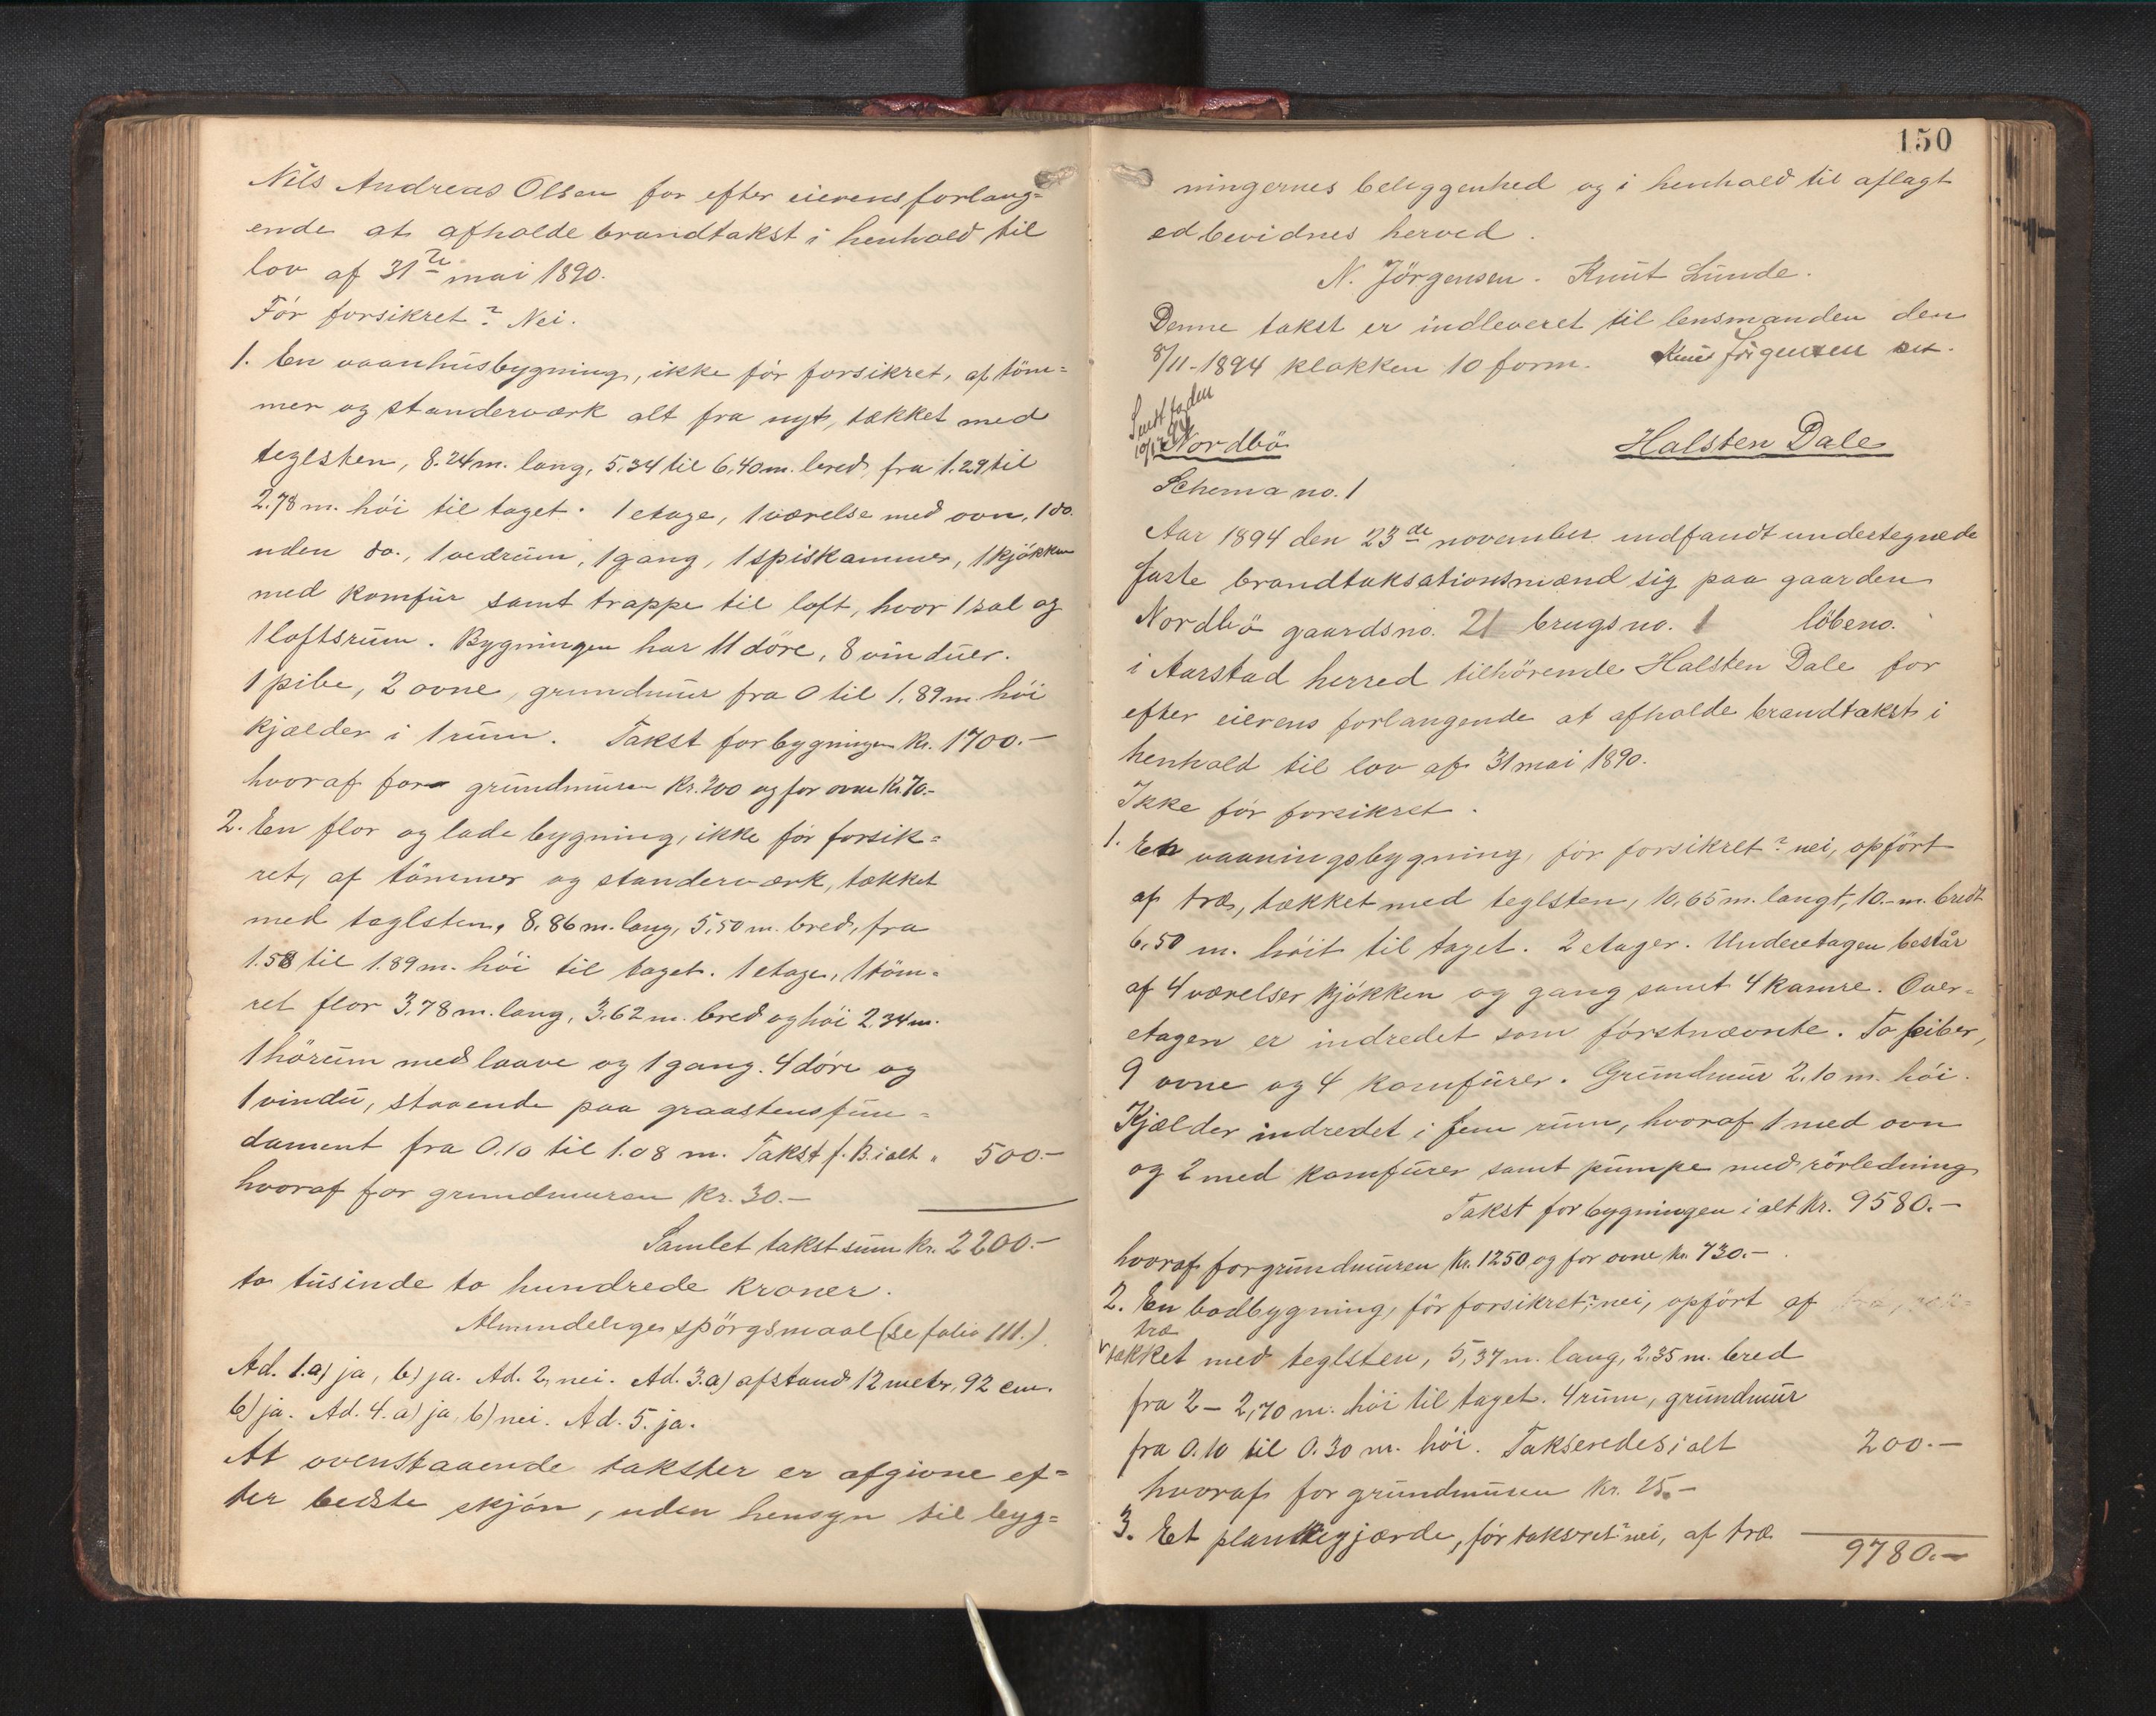 Nils Andreas Olsen for efter eierens forlang=
ende at afholde brandtakst i henhold til
lov af 31te mai 1890.
Før forsikret? Nei.
1. En vaanhusbygning, ikke før forsikret, af töm=
mer og standerværk alt fra nyt, tækket med
teglsten, 8.24 m. lang, 5.34 til 6,40 m. bred, fra 1.29 til
2.78 m. höi til taget. 1 etage, 1 værelse med ovn, 1 do.
uden do., 1 vedrum, 1 gang, 1 spiskammer, 1 kjökken
med komfur samt trappe til loft, hvor 1 sal og
1 loftsrum. Bygningen har 11 döre, 8 vinduer.
1 pibe, 2 ovne, grundmur fra 0 til 1.89 m. höi
kjælder i 1 rum. Takst for bygningen Kr. 1700.-
hvoraf for grundmuren Kr. 200 og for ovne Kr. 70.-
2. En flor og lade bygning, ikke før forsik=
ret, af tömmer og standerværk, tækket
med teglsten, 8.86 m. lang, 5,50 m. bred, fra
1.58 til 1.89 m. höi til taget. 1 etage, 1 töm=
ret flor 3.78 m. lang, 3.62 m. bred og höi 2.34 m.
1 hörum med laave og 1 gang. 4 döre og
1 vindu, staaende paa graastensfun=
dament fra 0.10 til 1.08 m. Takst f. B. i alt " 500.-
hvoraf for grundmuren Kr. 30.-
Samlet takstsum Kr. 2200.-
to tusinde to hundrede kroner.
Almindelige spörgsmaal (se folio 111.)
Ad. 1. a) ja, b) ja. Ad. 2, nei. Ad. 3. a) afstand 12 metr. 92 cm.
b) ja. Ad. 4. a) ja, b) nei. Ad. 5. ja.
At ovenstaaende takster er afgivne ef=
ter bedste skjön, uden hensyn til byg=
150
ningernes beliggenhed og i henhold til aflagt
ed bevidnes herved.
N. Jörgensen. Knut Lunde.
Denne takst er indleveret til lensmanden den
8/11-1894 klokken 10 form. Jörgensen
Nordbö Halsten Dale
Schema no. 1
Aar 1894 den 23de november indfandt undertegnede
faste brandtaksationsmænd sig paa gaarden
Nordbö gaardsno. 21 brugsno. 1 löbeno.
i Aarstad herred tilhörende Halsten Dale for
efter eierens forlangende at afholde brandtakst i
henhold til lov af 31 mai 1890.
Ikke før forsikret.
1. En vaaningsbygning, før forsikret? nei, opført
af træ, tækket med teglsten, 10,65 m. langt, 10.- m. bredt
6,50 m. höit til taget. 2 etager. Underetagen består
af 4 værelser kjökken og gang samt 4 kamre. Over=
etagen er indredet som förstnævnte. To piber,
9 ovne og 4 komfurer. Grundmur 2.10 m. höi.
Kjælder indredet i fem rum, hvoraf 1 med ovn
og 2 med komfurer samt pumpe med rörledning
Takst for bygningen i alt Kr. 9580.-
hvoraf for grundmuren Kr. 1250 og for ovne kr. 730.-
2. En bodbygning, før forsikret? nei, opført af
træ
tækket med teglsten, 5,37 m. lang, 2.35 m. bred
fra 2 - 2,70 m. höi til taget. 4 rum, grundmur
fra 0.10 til 0.30 m. höi. Takseredes i alt 200.-
hvoraf for grundmuren Kr. 25.-
3. Et plankegjærde, før takseret? nei, af træ
9780.-